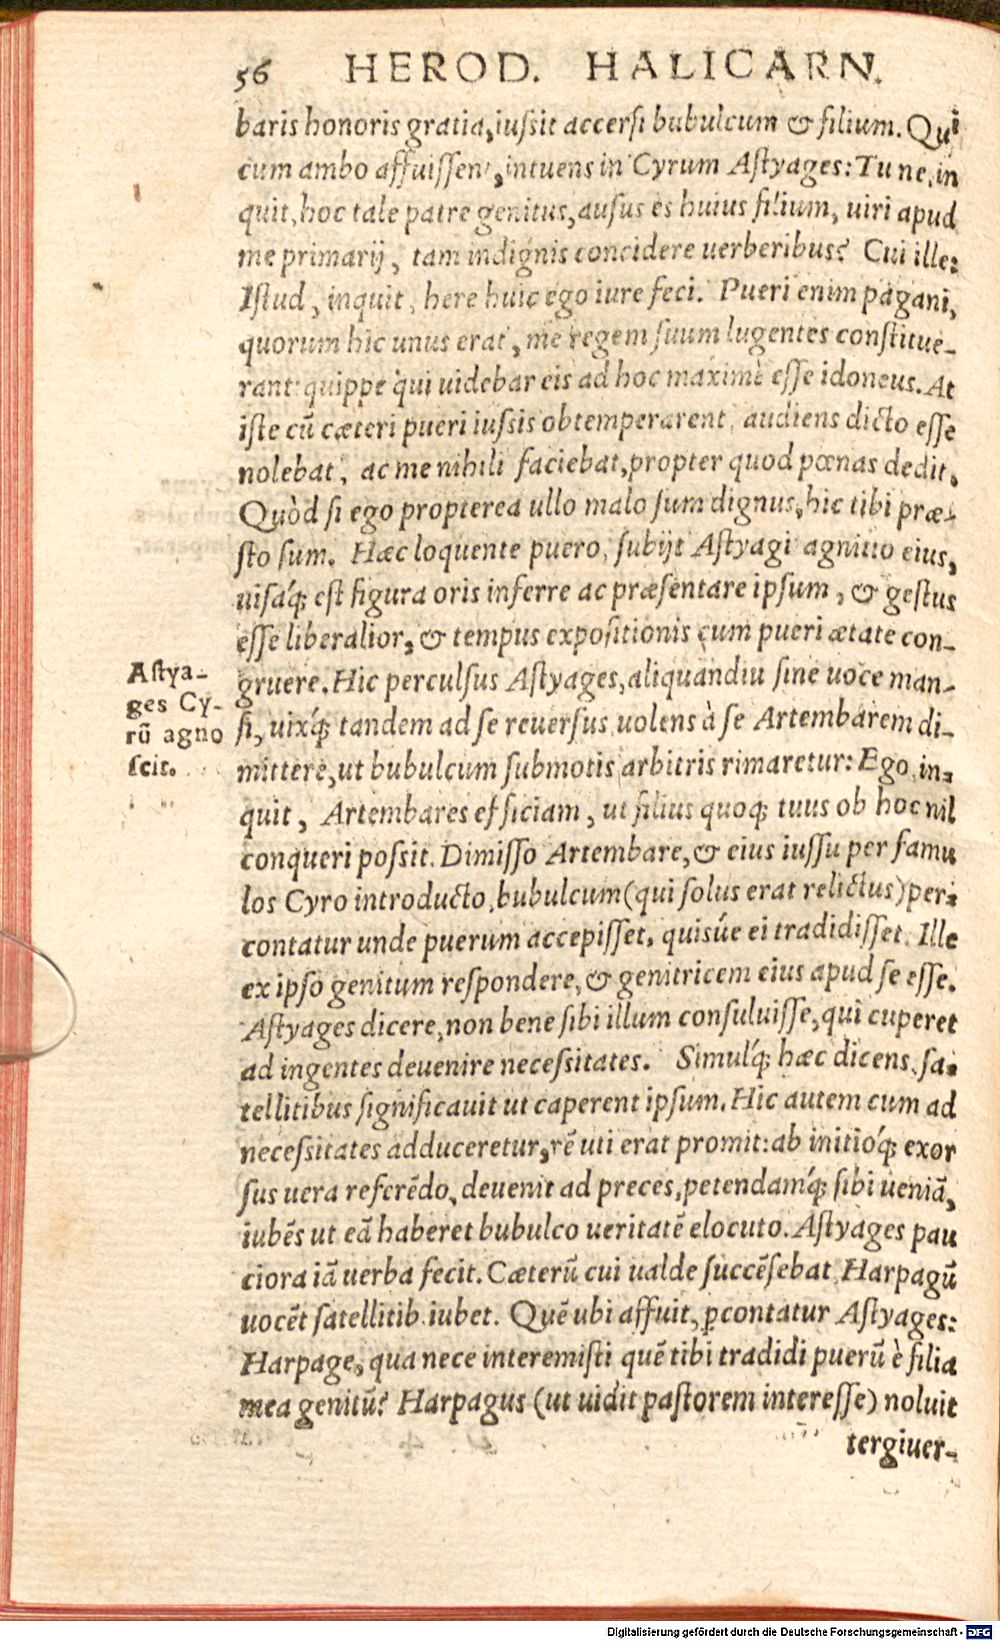 56 HEROD. HALICARN.
baris honoris gratia, iussit accersi bubulcum & filium. Qui
cum ambo affuissent, intuens in Cyrum Astyages: Tu ne, in
quit, hoc tale patre genitus, ausus es huius filium, uiri apud
me primarij, tam indignis concidere uerberibus? Cui ille:
Istud, inquit, here huic ego iure feci. Pueri enim pagani,
quorum hic unus erat, me regem suum lugentes constitue-
rant: quippe qui uidebar eis ad hoc maximè esse idoneus. At
iste cū cæteri pueri iussis obtemperarent, audiens dicto esse
nolebat, ac me nihili faciebat, propter quod pœnas dedit.
Quòd si ego propterea ullo malo sum dignus, hic tibi præ-
sto sum. Hæc loquente puero, subijt Astyagi agnitio eius,
uisáq; est figura oris inferre ac præsentare ipsum, & gestus
esse liberalior, & tempus expositionis cum pueri ætate con-
gruere. Hic perculsus Astyages, aliquandiu sine uoce man-
si, uixq́; tandem ad se reuersus uolens à se Artembarem di-
mittere, ut bubulcum submotis arbitris rimaretur: Ego, in-
quit, Artembares efficiam, ut filius quoq; tuus ob hoc nil
conqueri possit. Dimisso Artembare, & eius iussu per famu
los Cyro introducto, bubulcum (qui solus erat relictus) per-
contatur unde puerum accepisset, quisúe ei tradidisset. Ille
ex ipso genitum respondere, & genitricem eius apud se esse.
Astyages dicere, non bene sibi illum consuluisse, qui cuperet
ad ingentes deuenire necessitates. Simulq́; hæc dicens, sa-
tellitibus significauit ut caperent ipsum. Hic autem cum ad
necessitates adduceretur, rē uti erat promit: ab initioq́; exor
sus uera referēdo, deuenit ad preces, petendamq́; sibi ueniā,
iubēs ut eā haberet bubulco ueritatē elocuto. Astyages pau
ciora iā uerba fecit. Cæterū cui ualde succēsebat Harpagū
uocēt satellitib. iubet. Quē ubi affuit, ꝑcontatur Astyages:
Harpage, qua nece interemisti quē tibi tradidi puerū è filia
mea genitū? Harpagus (ut uidit pastorem interesse) noluit
tergiuer-
Astya-
ges Cy-
rū agno
scit.
Digitalisierung gefördert durch die Deutsche Forschungsgemeinschaft - DFG